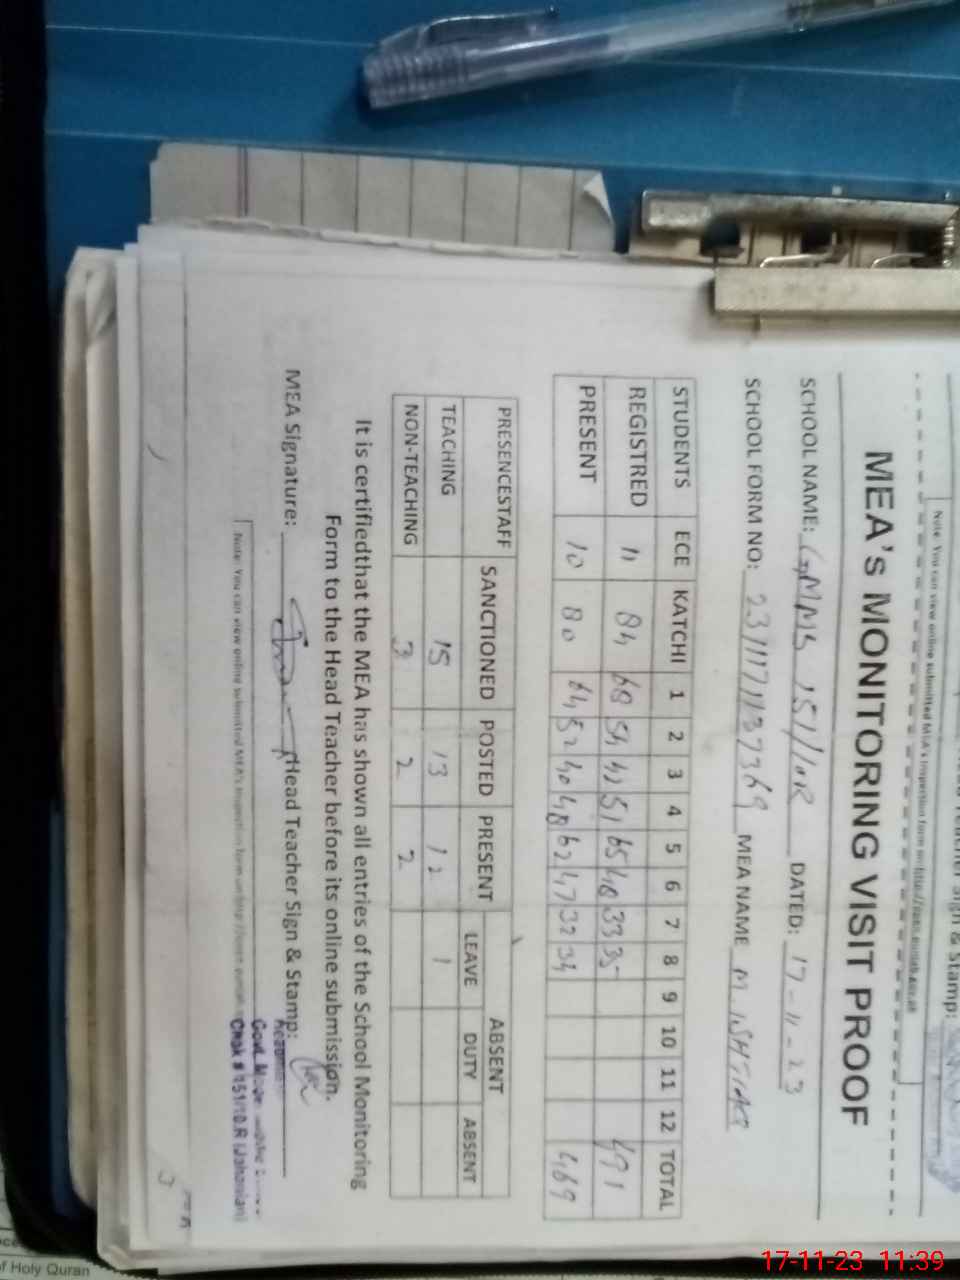 Sign & Stamp:
Note: You can view online submitted MEA's Inspection form on
MEA's MONITORING VISIT PROOF
SCHOOL NAME: GMMS 151/10R DATED: 17-11-23
SCHOOL FORM NO: MEA NAME M. ISHTIAQ
STUDENTS ECE KATCHI 1 2 3 4 5 6 7 8 9 10 11 12 TOTAL
REGISTRED 11 84 68 54 42 51 65 48 33 35 491
PRESENT 10 80 64 52 40 48 62 47 32 34 469
PRESENCESTAFF SANCTIONED POSTED PRESENT ABSENT
LEAVE DUTY ABSENT
TEACHING 15 13 12 1
NON-TEACHING 3 2 2
It is certifiedthat the MEA has shown all entries of the School Monitoring
Form to the Head Teacher before its online submission.
MEA Signature: Head Teacher Sign & Stamp:
Govt.
Chak # 151/10.R (Jahanian)
Note: You can view online submitted MEA's Inspection form on
of Holy Quran
17-11-23 11:39